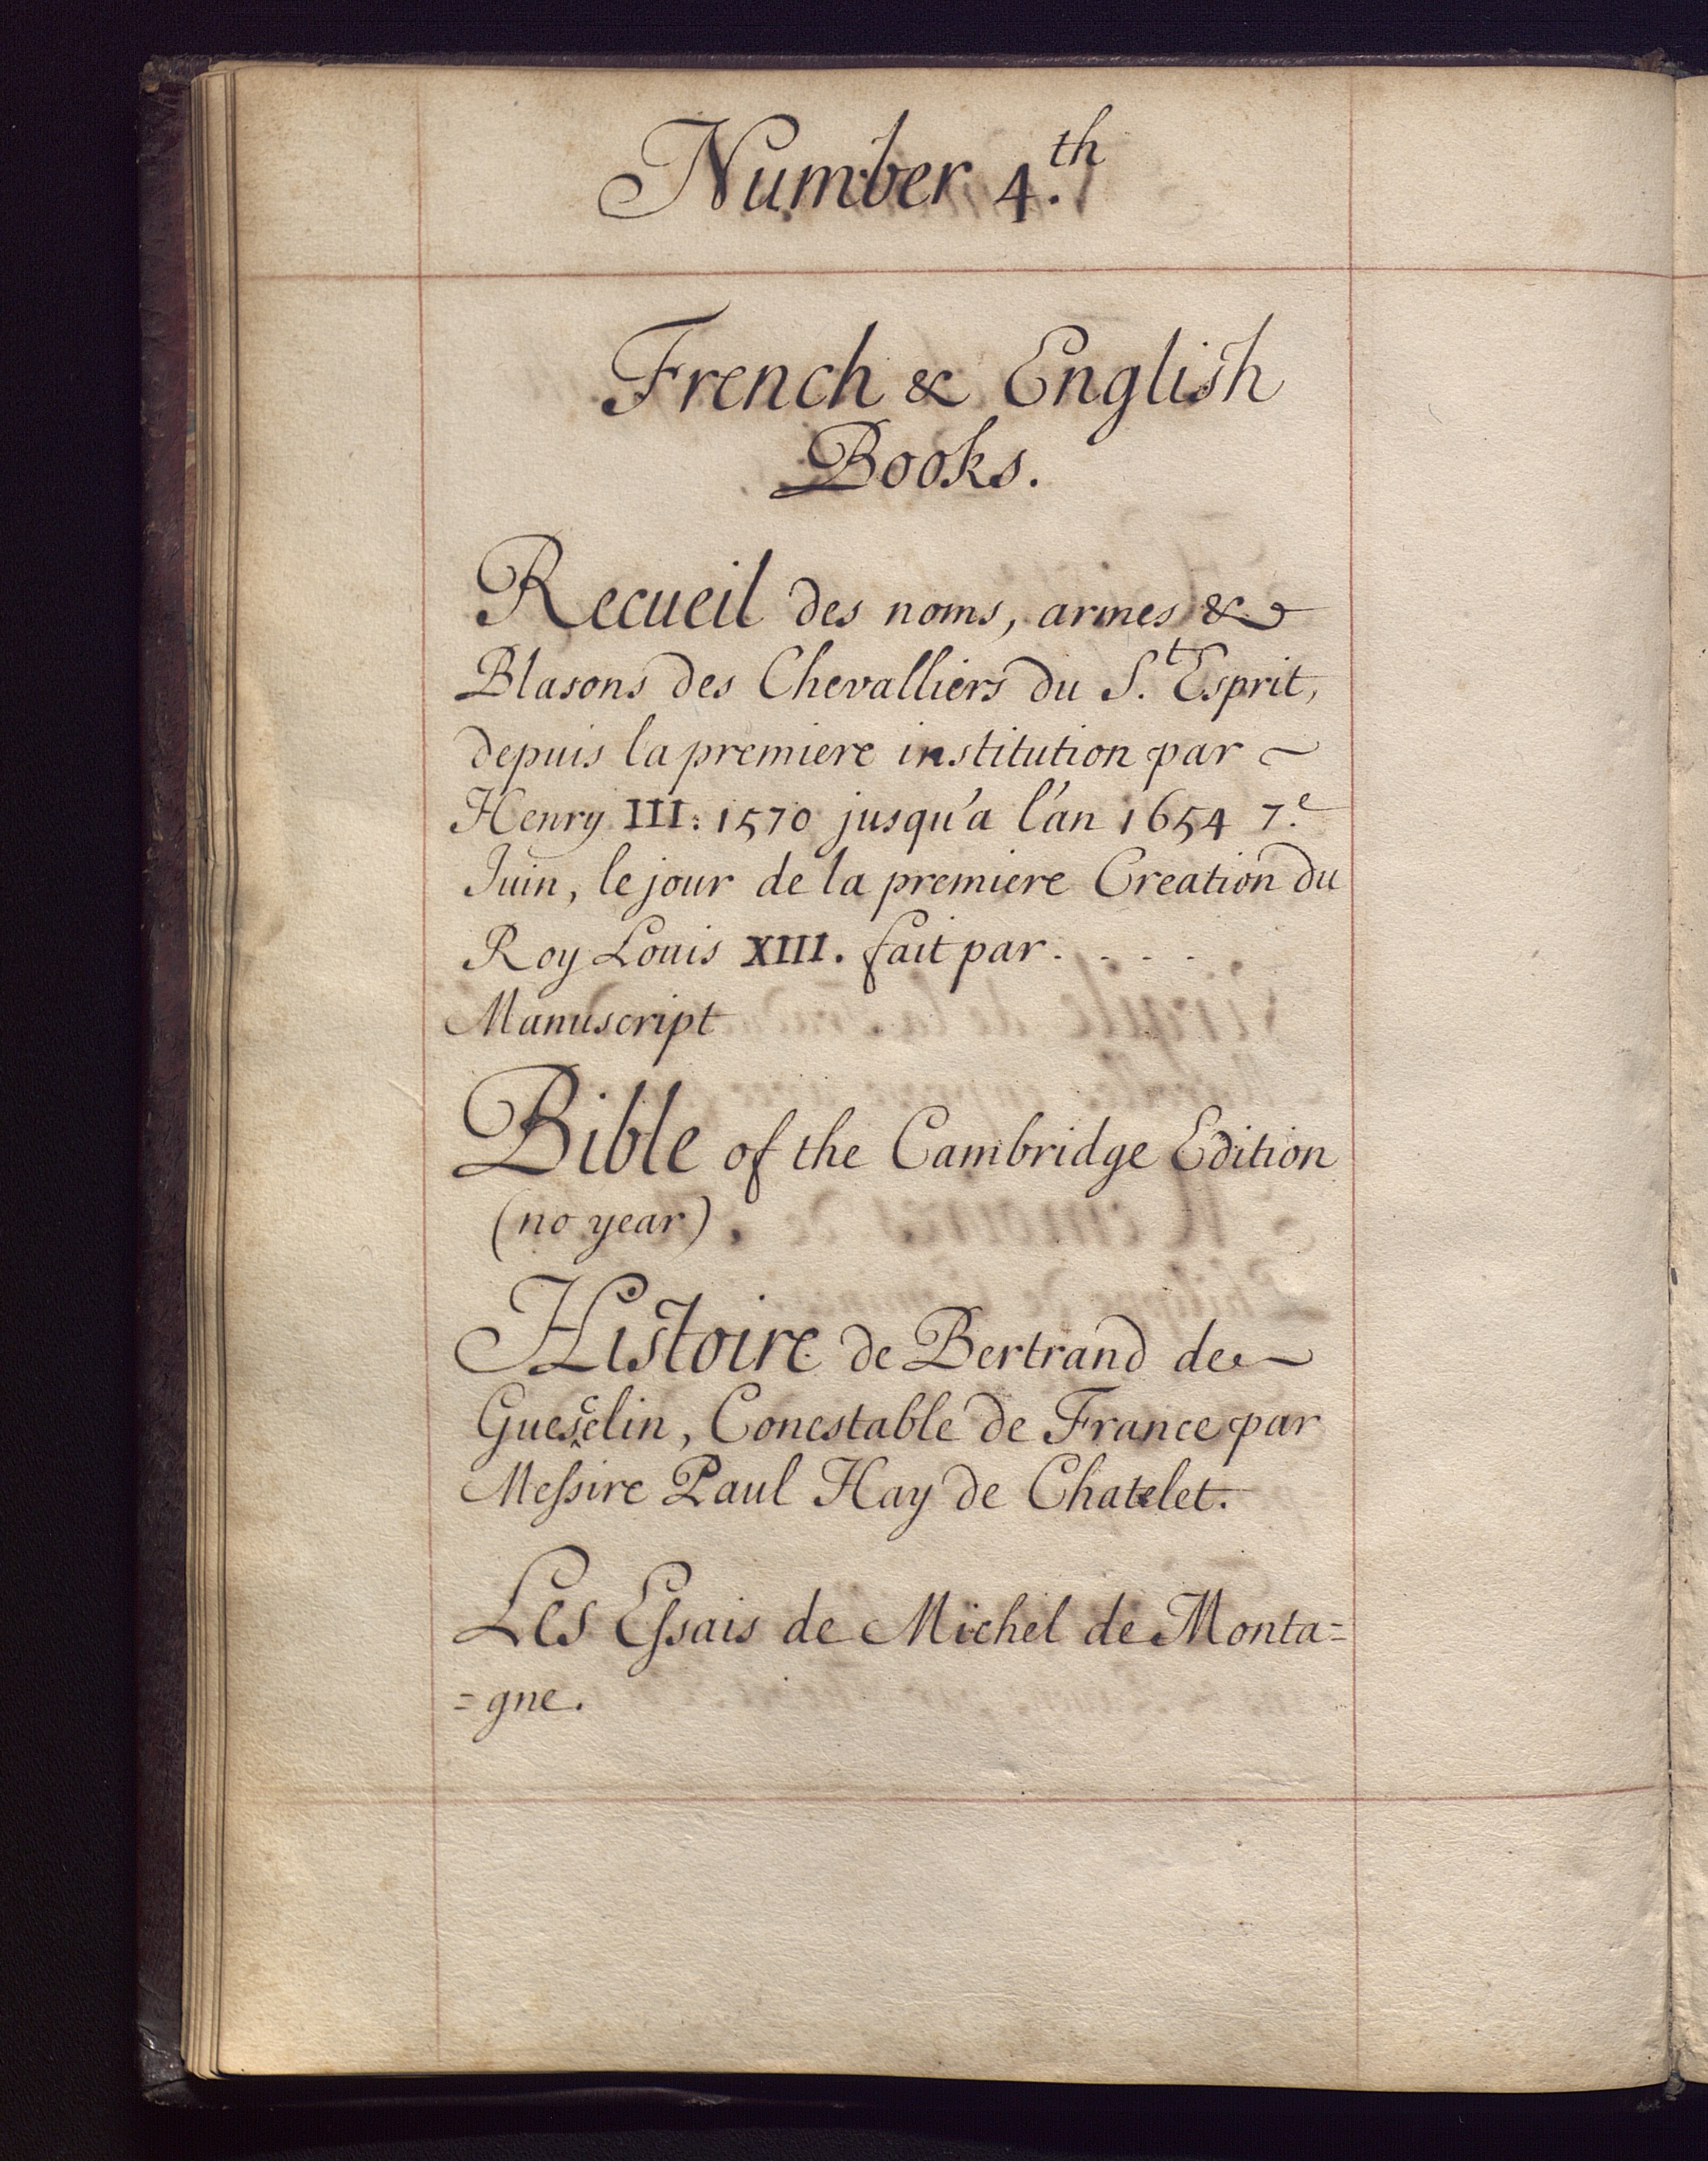 Number 4.th
French & English
Books.
Recueil des noms, armes &
Blasons des Chevalliers du S.t Esprit,
depuis la premiere institution par ~
Henry III: 1570 jusqu'a l'an 1654 7.e
Juin, le jour de la premiere Creation du
Roy Louis XIII. fait par. . . . .
Manuscript
Bible of the Cambridge Edition
(no year).
Histoire de Bertrand de ~
Guescelin, Conestable de France par
Messire Paul Hay de Chatelet.
Les Essais de Michel de Monta=
=gne.